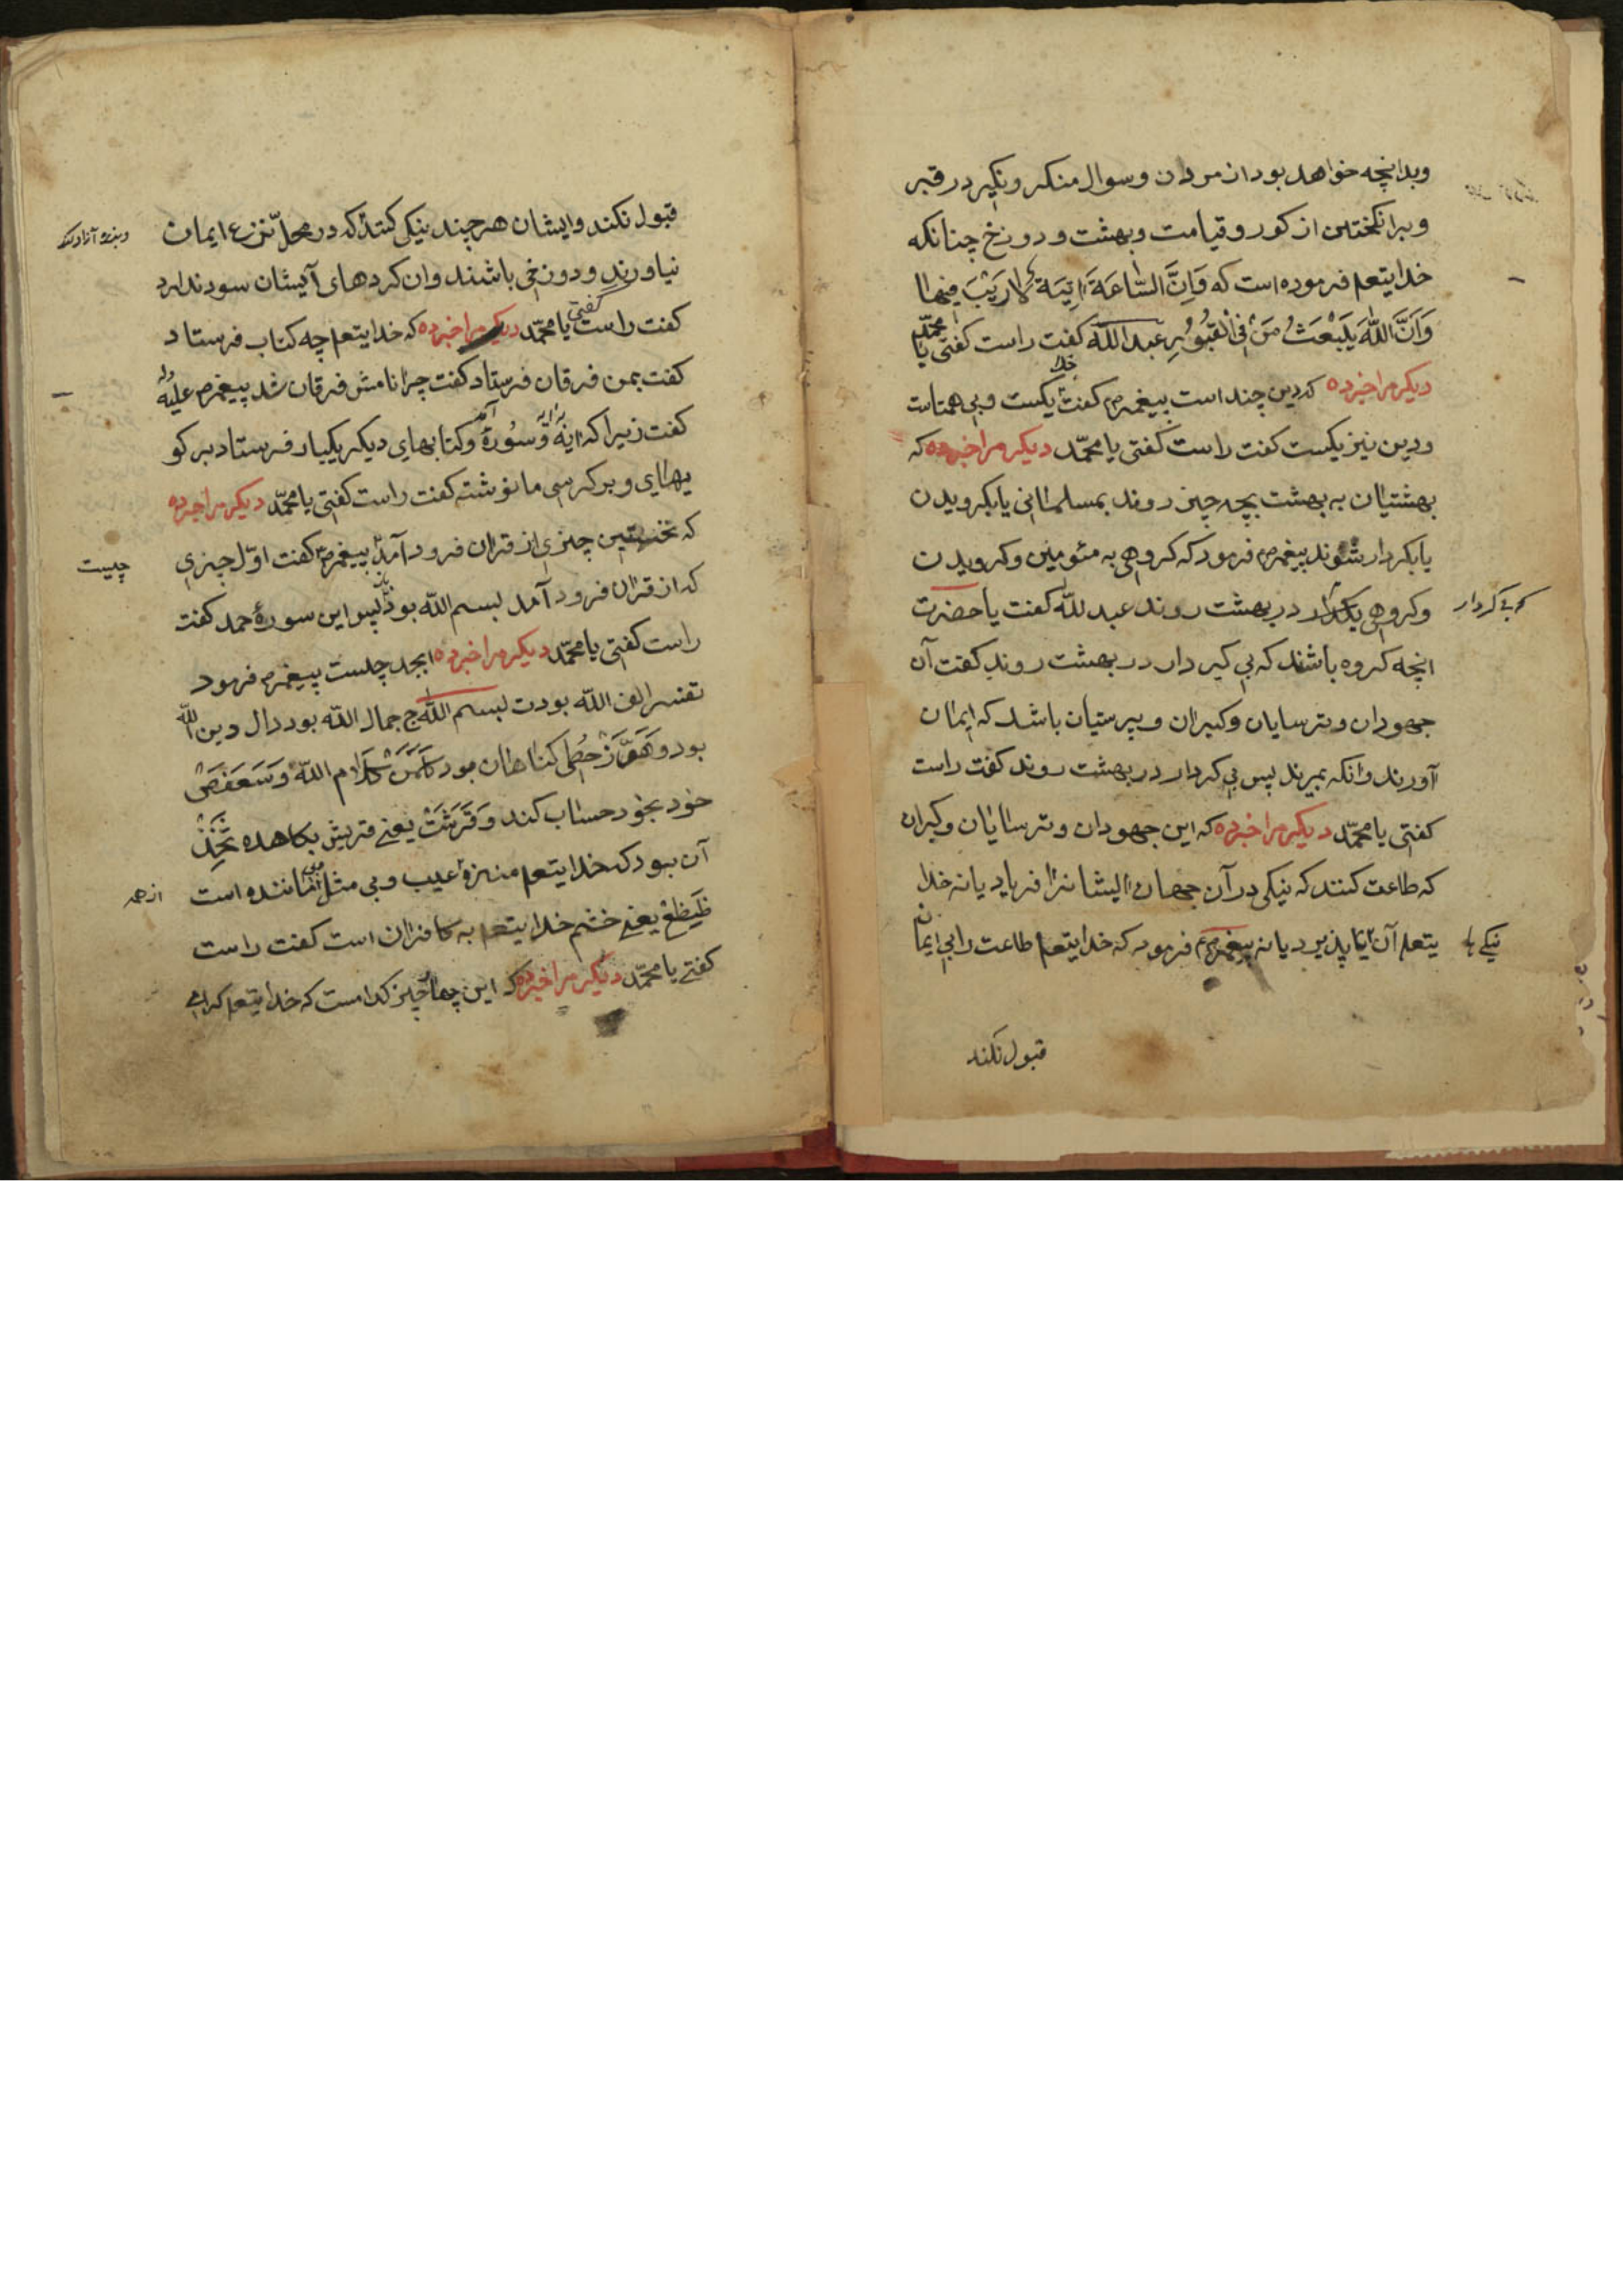 وبدانچه خواهد بود از مردن و سوال منکر و نکیر در قبر
و برانکختن از کور و قیامت و بهشت و دوزخ چنانکه
خدایتعم فرموده است که وَاِنَّ السَّاعَةَ اٰتِیَةٌ لَارَیْبَ فِیْهٰا
وَاَنَّ اللّٰهَ یَبْعَثُ مَنْ فِی الْقُبُوُرِ عبدالله کفت راست کفتی یا محمّد
دیکر مرا خبر ده که دین چند است پیغمبرم کفت خدا یکست و بی همتاست
و دین نیز یکست کفت راست کفتی یا محمّد دیکر مرا خبر ده که
بهشتیان به بهشت بچه چیز روند بمسلمانی یا بکرویدن
یا بکردار شوند پیغمبرم فرمود که کروهی به مئومنین و کرویدن
و کروهی بکردار در بهشت روند عبدلله کفت یا حضرت
که بی کردار
انچه کروه باشند که بی کیر دار در بهشت روند کفت آن
جهودان و ترسایان و کبیران و پیرستیان باشد که ایمان
آورند وانکه بمیرند پس بی کردار در بهشت روند کفت راست
کفتی یا محمّد دیکر مرا خبر ده که این جهودان و ترسایان و کبران
که طاعت کنند که نیکی در آن جهان ایشانرا فریاد یا نه خدا
یتعم آن پذیرد یا نه پیغمبرم فرمود که خدایتعم طاعت را بی ایمان
نیکی
قبول نکند
قبول نکند و ایشان هر چند نیکی کنند که در محلّ نزع ایمان
نیاورند و دوزخی باشند و ان کردهای آیشان سود ندارد
کفت راست کفتی یا محمّد دیکر مرا خبر ده که خدایتعم چه کتاب فرستاد
کفت بمن فرقان فرستاد کفت چرا نامش فرقان شد پیغمرم علیه
کفت زیرا که ایه و سُورهٔ و کتابهای دیکر یکبار فرستاد بر کو
یهای و بر کرسی ما نوشته کفت راست کفتی یا محمّد دیکر مرا خبر ده
که نخستین چیزی از قران فرود آمد پیغمرم کفت اوّل چیزی
چیست
که از قران فرود آمد بسم الله بود پس این سورهٔ حمد کفت
راست کفتی یا محمّد دیکر مرا خبر ده ابجد چیست پیغمرم فرمود
تفسر الف الله بود ت بسم الله ج جمال الله بود دال دین الله
بود و هَوَّزْ حُطِی کناهان بود کَلَمَنْ کلام الله و سَعَفَصْ
خود بخود حساب کند و قَرَشَتْ یعنی قریش بکاهده ثَخِّذْ
آن بود که خدایتعم منزهٔ عیب و بی مثل ماننده است
از همه
ظَیَظَغْ یعنی خشم خدایتعم به کافران است کفت راست
کفتی یا محمّد دیکر مرا خبر ده که این چهار چیز کدامست که خدایتعم کرامی